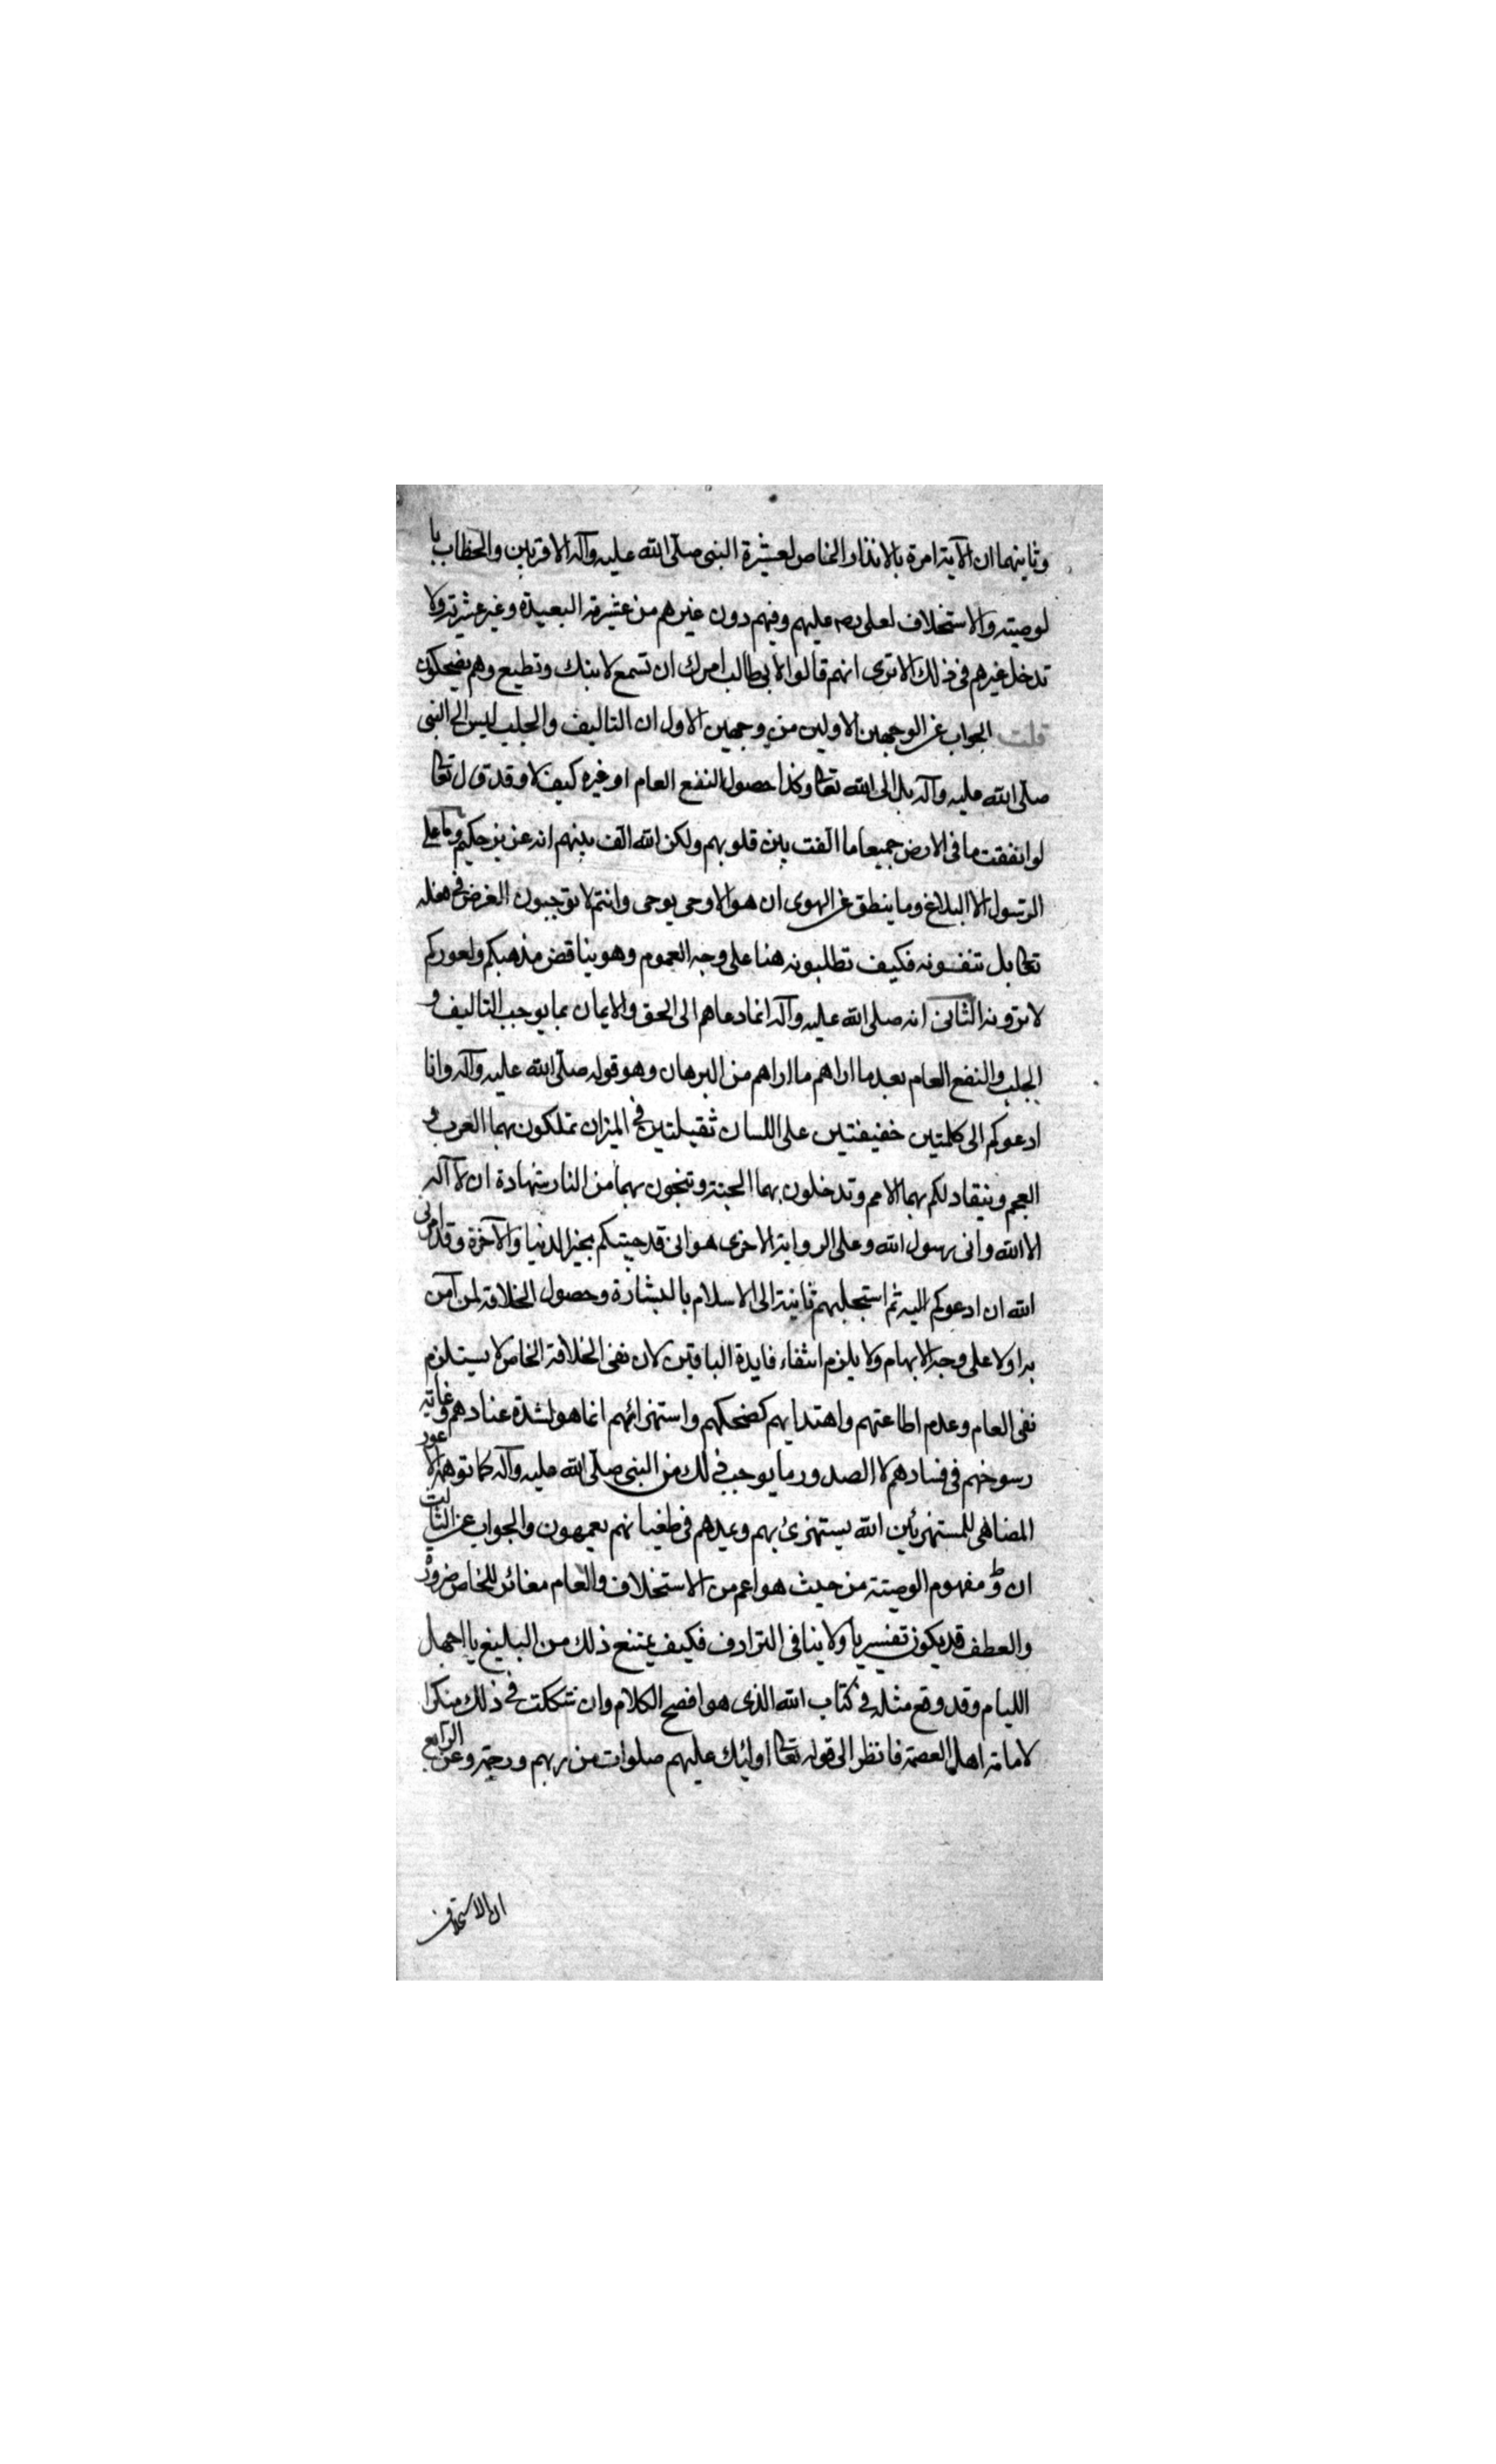 وثانيهما ان الآية امرة بالانذار الخاص لعشيرة النبى صلّى الله عليه وآله الاقربين والخطاب با
لوصية والاستخلاف لعلى عليهم وفيهم دون غيرهم من عشيرته البعيدة وغير عشيرته ولا
تدخل غيرهم فى ذلك الا ترى انهم قالوا لابى طالب امرك ان تسمع لابنك وتطيع وهم يضحكون
قلت الجواب عن الوجهين الاولين من وجهين الاول ان التاليف والجلب ليس الى النبى
صلّى الله عليه وآله بل الى الله تعا وكذا حصول النفع العام او غيره كيف لا وقد قال تعا
لو انفقت ما فى الارض جميعا ما الفت بين قلوبهم ولكن الله الف بينهم انه عزيز حكيم وما على
الرسول الا البلاغ وما ينطق عن الهوى ان هو الا وحى يوحى وانتم لا توجبون الغرض فى فعله
تعا بل تنفونه فكيف تطلبونه هنا على وجه العموم وهو يناقض مذهبكم ولعوركم
لا ترونه الثانى انه صلى الله عليه وآله انما دعاهم الى الحق والايمان بما يوجب التاليف و
الجلب والنفع العام بعد ما اراهم ما اراهم من البرهان وهو قوله صلّى الله عليه وآله وانا
ادعوكم الى كلمتين خفيفتين على اللسان ثقيلتين فى الميزان تملكون بهما العرب و
العجم وينقاد لكم بهما الامم وتدخلون بهما الجنة وتنجون بهما من النار شهادة ان لا آله
الا الله وانى رسول الله وعلى الرواية الاخرى هو انى قد جيتكم بخير الدنيا والآخرة وقد امرنى
الله ان ادعوكم اليه ثم استجلبهم ثانية الى الاسلام بالبشارة وحصول الخلافة لمن آمن
به اولا على وجه الابهام ولا يلزم انتفاء فايدة الباقين لان نفى الخلافة الخاص لا يستلزم
نفى العام وعدم اطاعتهم واهتدايهم كضحكهم واستهزائهم انما هو لشدة عنادهم وغاية
رسوخهم فى فسادهم لا لصدور ما يوجب ذلك من النبى صلّى الله عليه وآله كما توهمه الاعور
المضاهى للمستهزئين الله يستهزئ بهم ويمدهم فى طغيانهم يعمهون والجواب عن الثالث
ان مفهوم الوصية من حيث هو اعم من الاستخلاف والعام مغائر للخاص ضرورة
والعطف قد يكون تفسيريا ولا ينافى الترادف فكيف يمتنع ذلك من البليغ يا اجهل
الليام وقد وقع مثله فى كتاب الله الذى هو افصح الكلام وان شككت فى ذلك منكرا
لامامة اهل العصمة فانظر الى قوله تعا اوليك عليهم صلوات من ربهم ورحمة وعن الرابع
ان الاستخلاف